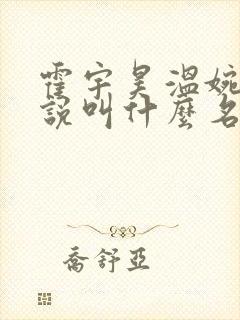 霍宇昊溫婉
說叫什麼名
喬舒亞